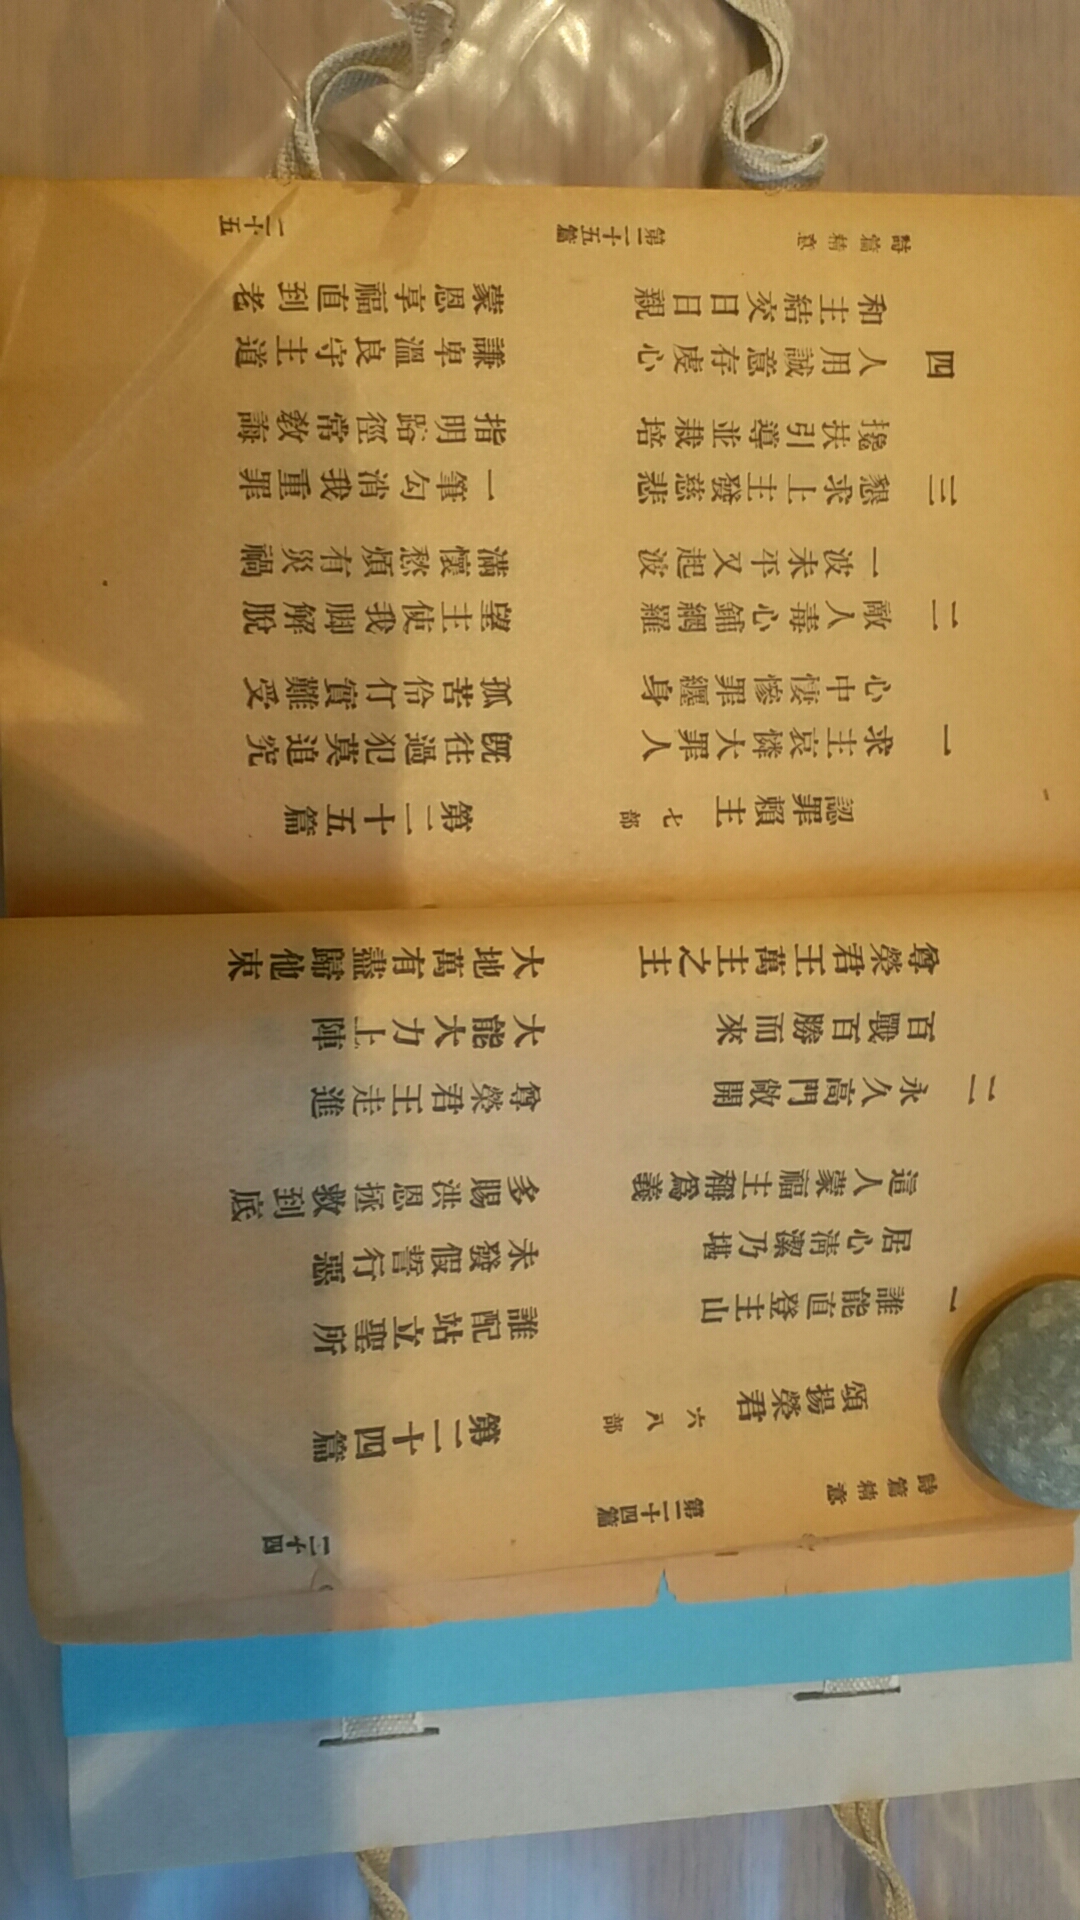 詩篇精意 第二十四篇 二十四
頌揚榮君 六八部 第二十四篇
一 誰能直登主山 誰配站立聖所
居心清潔乃堪 未發假誓行惡
這人蒙福主稱爲義 多賜洪恩拯救到底
二 永久高門敞開 尊榮君王走進
百戰百勝而來 大能大力上陣
尊榮君王萬主之主 大地萬有盡歸他束
認罪賴主 七部 第二十五篇
一 求主哀憐大罪人 既往過犯莫追究
心中悽慘罪纏身 孤苦伶仃實難受
二 敵人毒心鋪網羅 望主使我脚解脫
一波未平又起波 滿懷愁煩有災禍
三 懇求上主發慈悲 一筆勾消我重罪
攙扶引導並栽培 指明路徑常敎誨
四 人用誠意存虔心 謙卑溫良守主道
和主結交日日親 蒙恩享福直到老
詩篇精意 第二十五篇 二十五